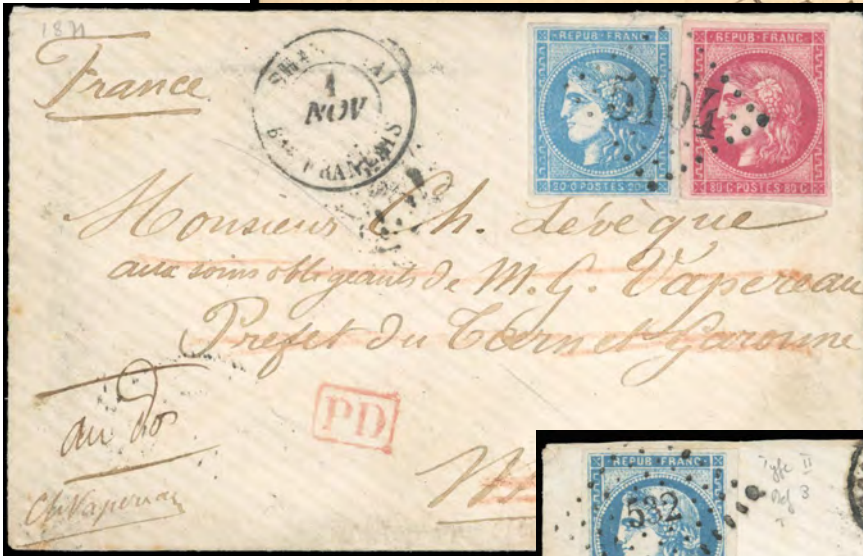 1871
France
SHANG AI
1
NOV
Bau FRANÇAIS
REPUB·FRANC
20·C·POSTES·20·C
REPUB·FRANC
80·C·POSTES·80·C
5104
Monsieur Ch. Lévêque
aux soins obligeants de M. G. Vapereau
Préfet du Tarn et Garonne
au dos
PD
Ch Vapereau
REPUB·FRANC
532
Type II